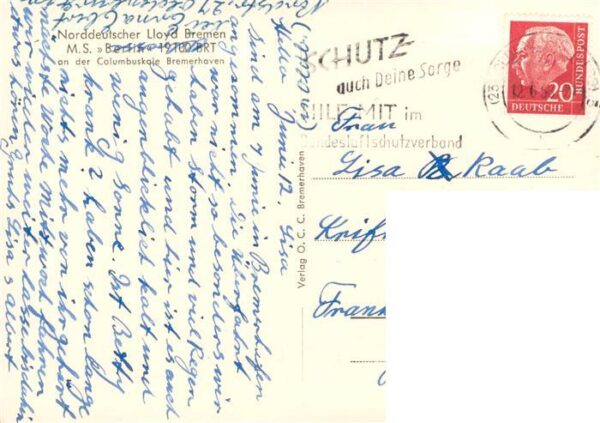 Norddeutscher Lloyd Bremen
M.S. »Berlin« 19100 BRT
an der Columbuskaje Bremerhaven
SCHUTZ
auch Deine Sorge
HILF MIT im
Bundesluftschutzverband
20
DEUTSCHE
BUNDESPOST
Frau
Lisa Raab
Verlag O. C. C. Bremerhaven
Juni 12.
Lisa
sind am 7 Juni in Bremerhafen
an
Die Überfahrt
war nicht so besonders wir
haben Storm und viel Regen
gehabt und hier ist es auch
augenblicklich kalt und
wenig Sonne. Ist Betty
krank? haben schon lange
nicht mehr von ihr gehört
nächste Woche Mittwoch fahren
wir wieder weiter lasse bis dahin
etwas
Gruß Lisa & Albert